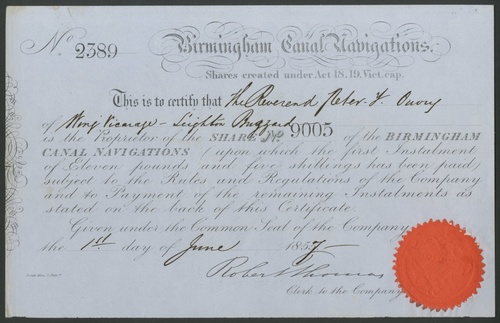 No 2389
Birmingham Canal Navigations.
Shares created under Act 18.19, Vict. cap.
This is to certify that The Reverend Peter T. Ouvry
of Wing Vicarage - Leighton Buzzard
is the Proprietor of the SHARE No. 9005 of the BIRMINGHAM
CANAL NAVIGATIONS (upon which the first Instalment
of Eleven pounds and five shillings has been paid)
subject to the Rules and Regulations of the Company
and to Payment of the remaining Instalments as
stated on the back of this Certificate.
Given under the Common Seal of the Company
the 1st day of June 1857
Robert Thomas
Clerk to the Company